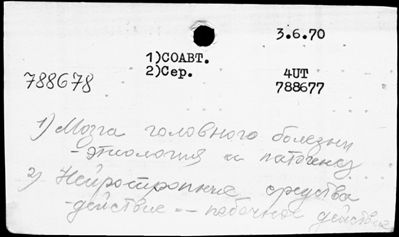 3.6.70
1)СОАВТ.
2)Сер.
4UT
788678
788677
1) Мозга головного болезни
- этиология и патогенез
2) Нейротропные средства
- действие -- побочное действие